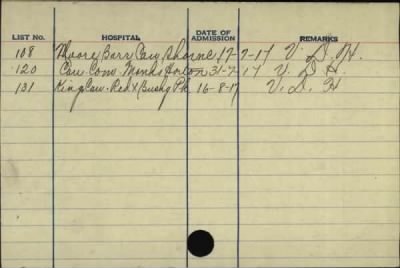 LIST NO. HOSPITAL DATE OF ADMISSION REMARKS
108 Moore Barr Can Shorne 17-7-17 V. D. H.
120 Can Con Monks Horton 31-7-17 V. D. H.
131 King Can. Red X Bushy Pk 16-8-17 V. D. H